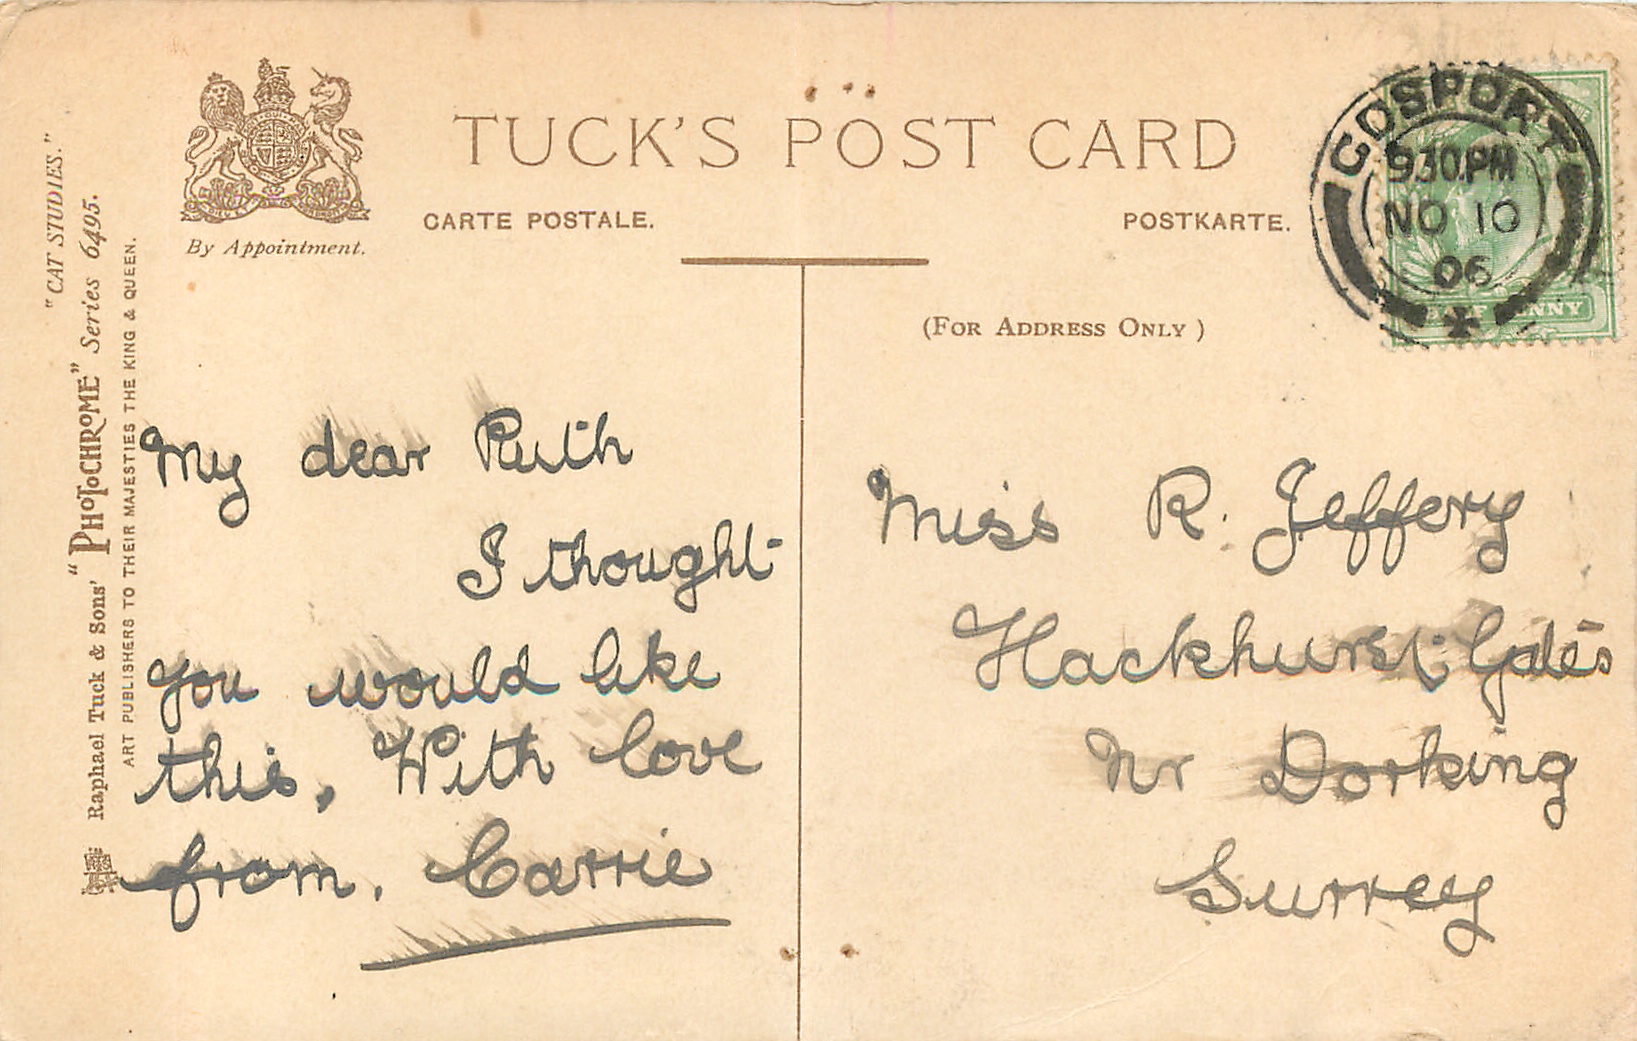 "CAT STUDIES."
Raphael Tuck & Sons' "PHOTOCHROME" Series 6495.
ART PUBLISHERS TO THEIR MAJESTIES THE KING & QUEEN.
By Appointment.
TUCK'S POST CARD
CARTE POSTALE.
POSTKARTE.
(FOR ADDRESS ONLY)
GOSPORT
9.30.PM
NO 10
06
My dear Ruth
I thought
you would like
this, With love
from. Carrie
Miss R. Jeffery
Hackhurst Gates
Nr Dorking
Surrey